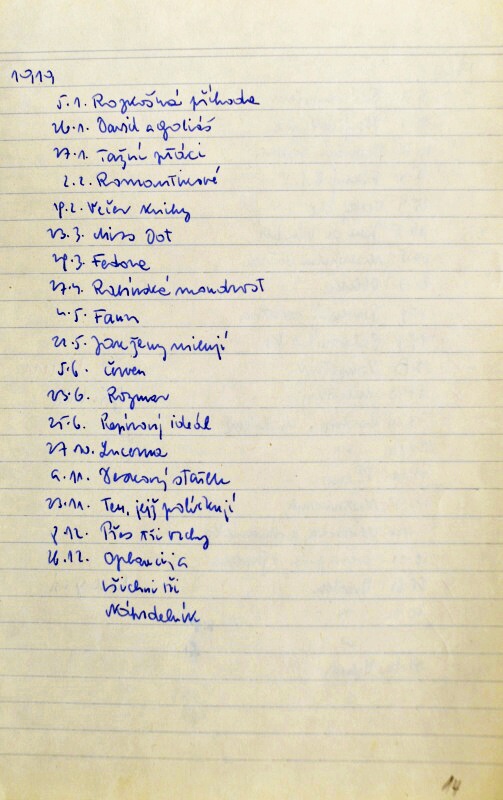 1919
5.1. Rozkošná příhoda
26.1. David a Goliáš
27.1. Tažní ptáci
2.2. Romantikové
9.2. Večer knihy
23.3. Miss Dot
29.3. Fedora
27.4. Rabínská moudrost
4.5. Faun
21.5. Jak ženy milují
5.6. Červen
23.6. Rozmar
25.6. Papírový ideál
27.10. Lucerna
9.11. statek
23.11. Ten, jejž políčkují
8.12. Přes tři vrchy
26.12.
Všichni tři
Náhrdelník
14